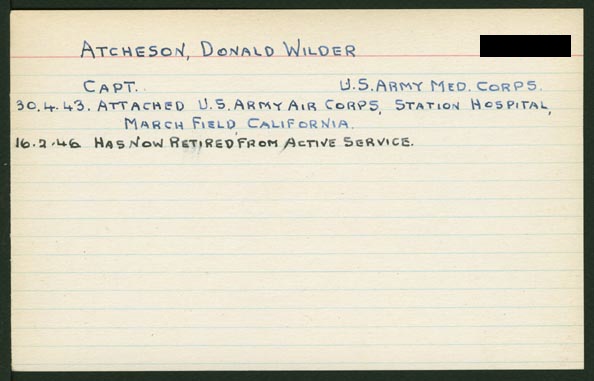 ATCHESON, DONALD WILDER
CAPT. U.S. ARMY MED. CORPS.
30.4.43. ATTACHED U.S. ARMY AIR CORPS, STATION HOSPITAL,
MARCH FIELD, CALIFORNIA.
16.2.46 HAS NOW RETIRED FROM ACTIVE SERVICE.